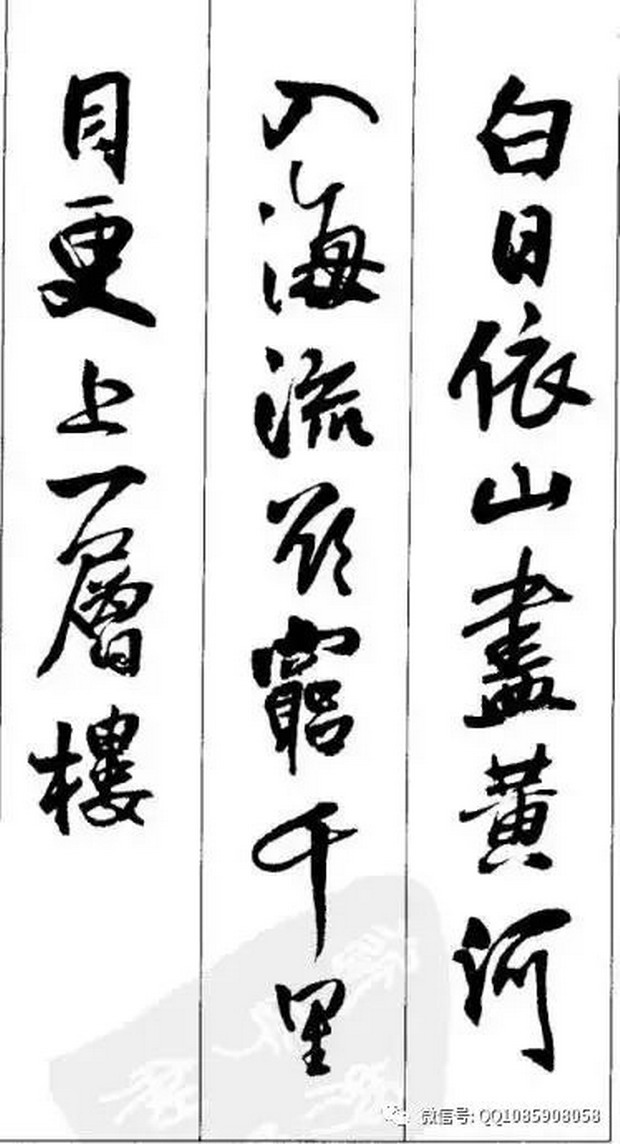 白日依山盡黄河
入海流欲窮千里
目更上一層樓
微信号: QQ1085908058